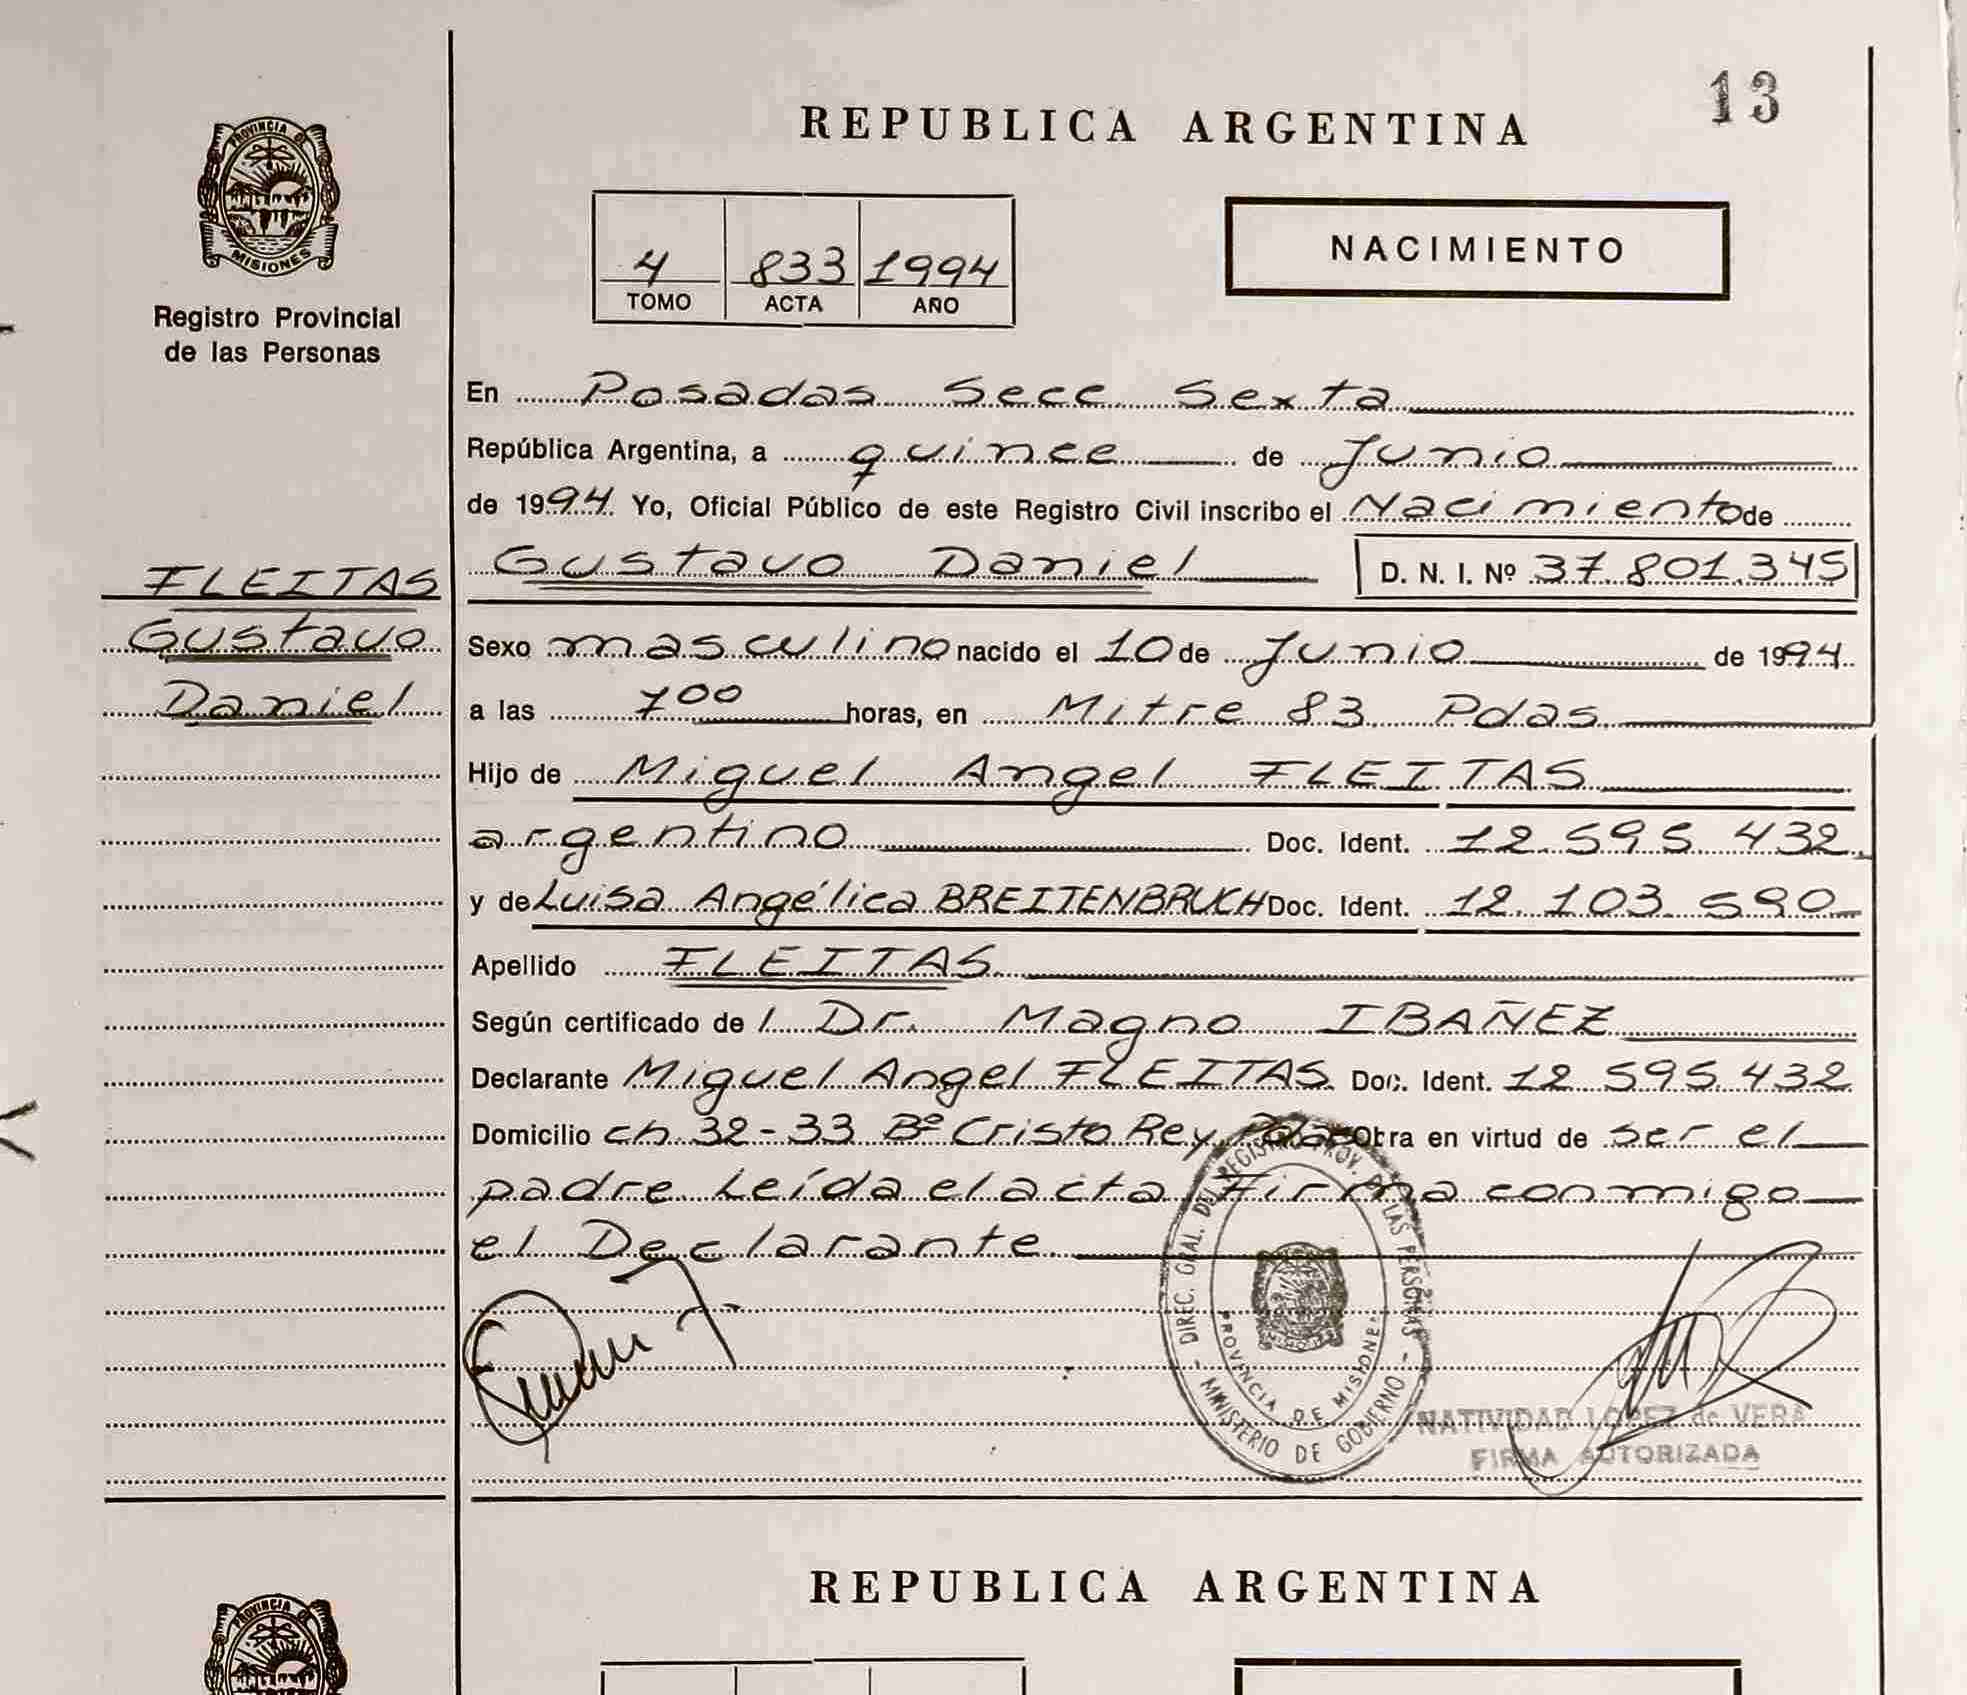 13
REPUBLICA ARGENTINA
PROVINCIA DE
MISIONES
Registro Provincial
de las Personas
4 833 1994
TOMO ACTA AÑO
NACIMIENTO
En Posadas Secc Sexta
República Argentina, a quince de Junio
de 1994 Yo, Oficial Público de este Registro Civil inscribo el Nacimiento de
Gustavo Daniel D. N. I. Nº 37.801.345
FLEITAS
Gustavo
Daniel
Sexo masculino nacido el 10 de Junio de 1994
a las 7 00 horas, en Mitre 83 Pdas
Hijo de Miguel Angel FLEITAS
argentino Doc. Ident. 12.595.432
y de Luisa Angélica BREITENBRUCH Doc. Ident. 12.103.590
Apellido FLEITAS
Según certificado de l Dr. Magno IBAÑEZ
Declarante Miguel Angel FLEITAS Doc. Ident. 12.595.432
Domicilio ch 32-33 Bº Cristo Rey Pdas Obra en virtud de ser el
padre Leída el acta Firma conmigo
el Declarante
DIREC. GRAL. DEL REGISTRO PROV. DE LAS PERSONAS
MINISTERIO DE GOBIERNO
PROVINCIA DE MISIONES
NATIVIDAD LOPEZ de VERA
FIRMA AUTORIZADA
REPUBLICA ARGENTINA
PROVINCIA DE